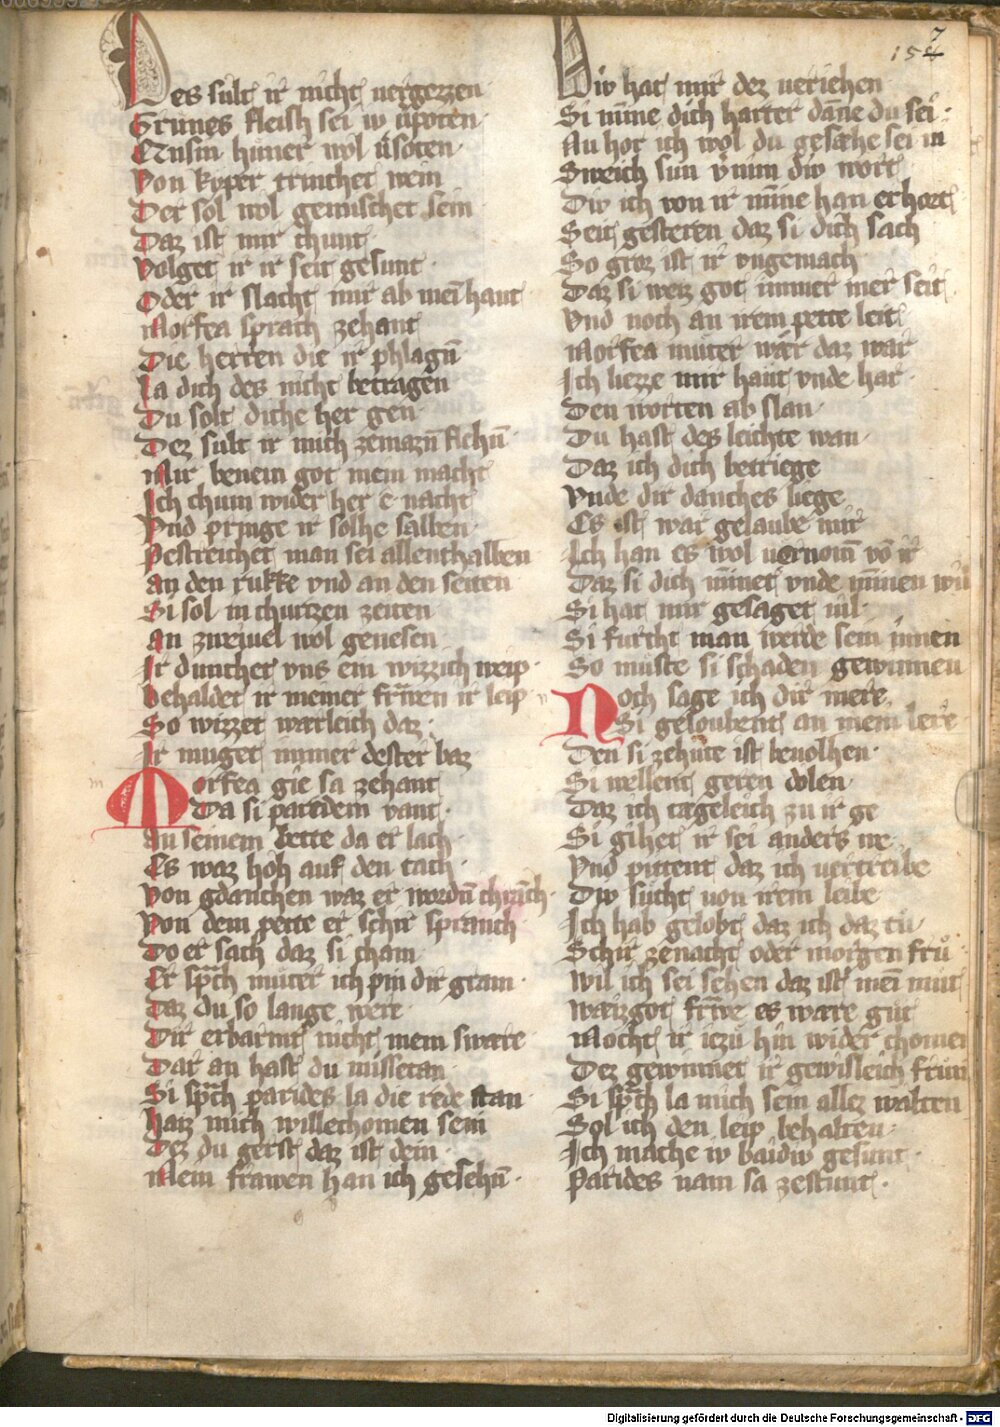 157
Des sult ir nicht uergezzen
Grunes fleish sei iv v̓poten
Cinsin hůner wol v̓soten
Von kyper trinchet wein
Der sol wol gemischet sein
Daz ist mir chunt
Volget ir ir seit gesunt
Oder ir slacht mir ab mei haut
Morfea sprach zehant
Die herren die ir phlagn̄
La dich des nicht betragen
Du solt diche her gen
Dez sult ir mich zemazn̄ flehn̄
Mir benem got mein macht
Ich chum wider her e nacht
Vnd pringe ir solhe salben
Pestreichet man sei allenthalben
An den rukke vnd an den seiten
Si sol in churtzen zeiten
An zweiuel wol genesen
Ir dunchet vns ein wizzich weip
Behaldet ir meiner fr̄wen ir leip
So wizzet warleich daz
Ir muget immer dester baz
Morfea gie sa zehant
Da si paridem vant
An seinem bette da er lach
Es waz hoh auf den tach
Von gdanchen waz er wordn̄ chranch
Von dem pette er schir spranch
Do er sach daz si cham
Er sp̄ch můter ich pin dir gram
Daz du so lange were
Dir erbarmt nicht mein sware
Dar an hast du missetan
Si sp̄ch parides la die rede stan
Haiz mich willechomen sein
Dez du gerst daz ist dein
Mein frawen han ich gesehn̄
Div hat mir dez ueriehen
Si minne dich harter danne du sei
Nu hor ich wol du gesæhe sei in
Sweich sun v̓nim div wort
Div ich von ir minne han erhort
Seit gesteren daz si dich sach
So groz ist ir vngemach
Daz si weiz got immer mer seit
Vnd noch an irem pette leit
Morfea můter wær daz war
Ich liezze mir haut vnde har
Den worten ab slan
Du hast des leichte wan
Daz ich dich betriege
Vnde dir danches liege
Es ist war gelaube mir
Ich han es wol uernom̄ vō ir
Daz si dich minnet vnde minnen wil
Si hat mir gesaget uil
Si furcht man werde sein innen
So muste si schaden gewinnen
Noch sage ich dir mere
Si geloubent an mein lere
Den si zehute ist beuolhen
Si wellent geren dolen
Daz ich tageleich zu ir ge
Si gihet ir sei anders we
Vnd pittent daz ich uertreibe
Div sucht uon irem leibe
Ich hab gelobt daz ich daz tů
Schir zenacht oder morgen frů
Wil ich sei sehen daz ist mei můt
Waizgot fr̄we es ware gůt
Mocht ir iczů hin wider chomen
Dez gewinnet ir gewisleich frům
Si sp̄ch la mich sein allez walten
Sol ich den leip behalten
Ich mache iv baidiv gesunt
Parides nam sa zestunt
Digitalisierung gefördert durch die Deutsche Forschungsgemeinschaft - DFG